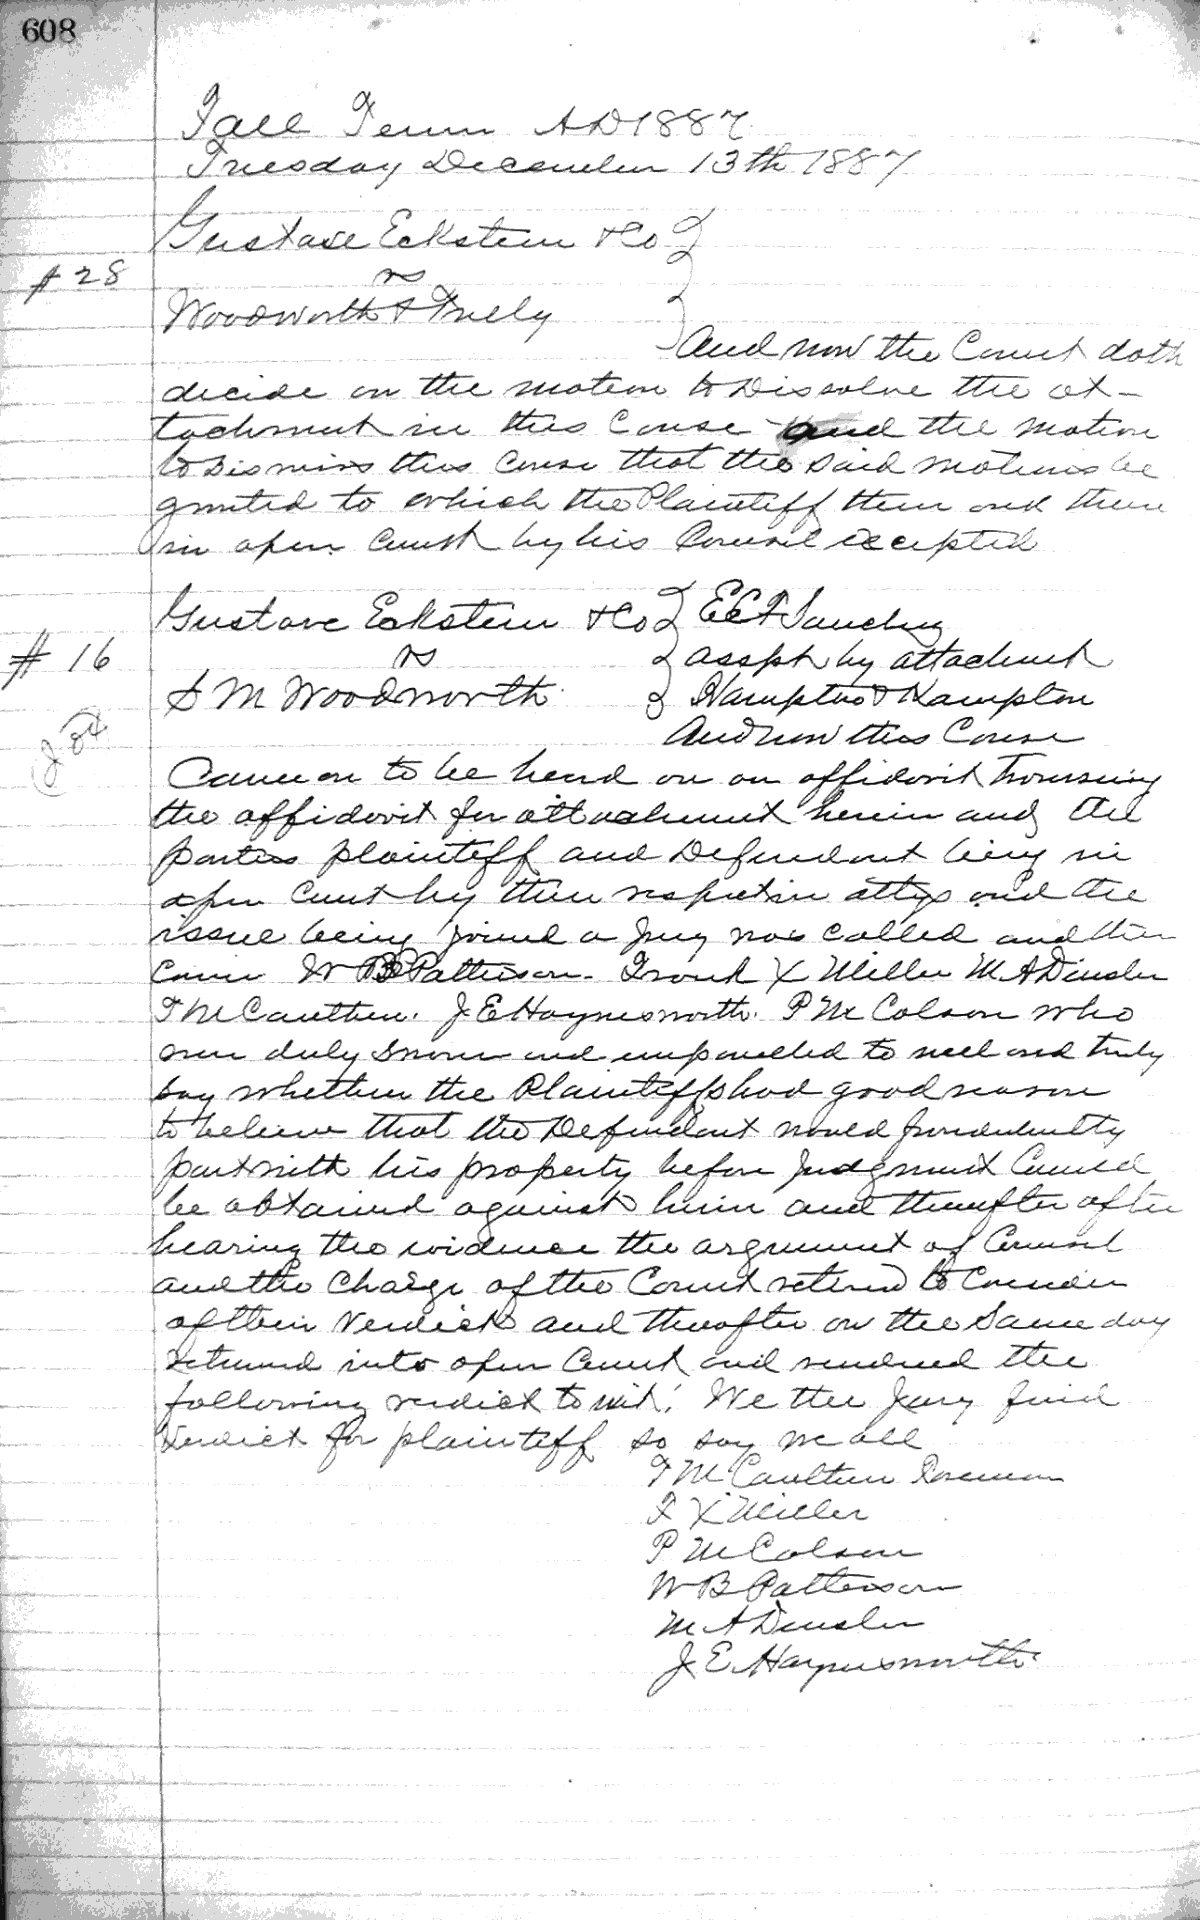 608
Fall Term AD 1887
Tuesday December 13th 1887
Gustave Eckstein & Co
# 28
vs
Woodworth & Truely
And now the Court doth
decide on the motion to Dissolve the at-
tachment in this Cause and the motion
to Dismiss this cause that the said motions be
granted to which the Plaintiff then and there
in open Court by his Council excepted
Gustave Eckstein & Co
vs
# 16
S M Woodworth
asspt by attachment
Hampton & Hampton
And now this Cause
Came on to be heard on an affidavit traversing
the affidavit for attachment herein and the
parties plaintiff and Defendant being in
open Court by their respective attys and the
issue being joined a jury was called and then
came W B Patterson. Frank X Miller M A Dinsler
T M Cauthen. J E Haynesworth. P M Colson who
were duly sworn and empanelled to well and truly
say whether the Plaintiffs had good reason
to believe that the Defendant would fraudulently
part with his property before judgment Could
be obtained against him and thereafter after
hearing the evidence the argument of Counsel
and the charge of the Court retired to Consider
of their Verdict and thereafter on the Same day
returned into open Court and rendered the
following verdict to wit: We the Jury find
Verdict for plaintiff so say we all
T M Cauthen Foreman
F X Miller
P M Colson
W B Patterson
M A Dinsler
J E Haynesworth